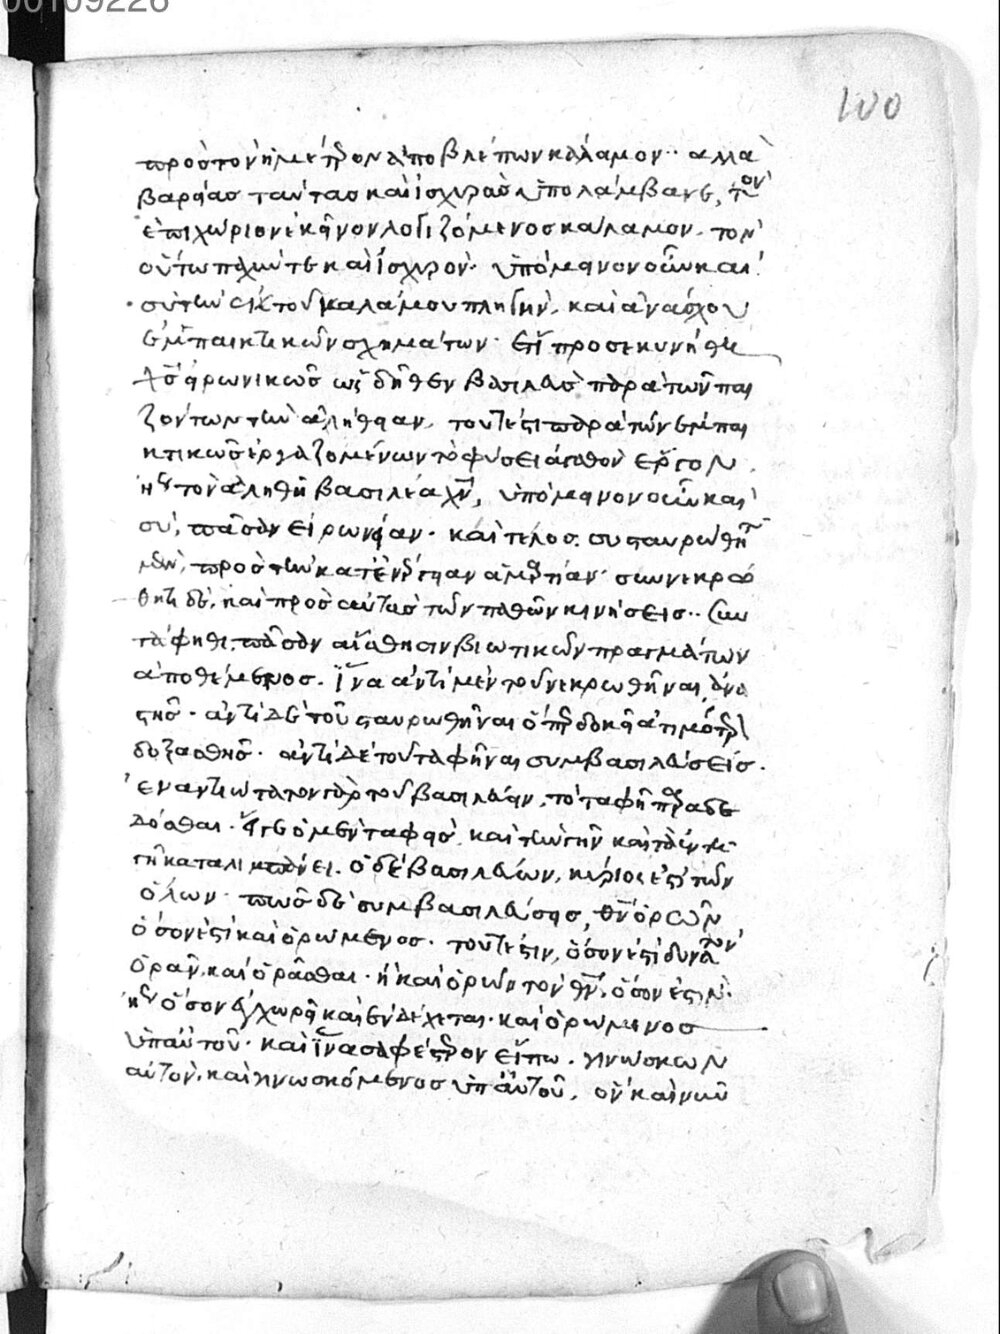 06109226
100
προς τὸν ἡμέτερον ἀποβλέπων κάλαμον· ἀλλὰ
βαρείας ταύτας καὶ ἰσχυρὰς ὑπολάμβανε, τὸν
ἐπιχώριον ἐκεῖνον λογιζόμενος κάλαμον. τὸν
οὕτω παχύν τε καὶ ἰσχυρόν· ὑπόμεινον οὖν καὶ
σὺ τὴν ἐκ τοῦ καλάμου πληγήν, καὶ ἀνάσχου
ἐμπαικτικῶν σχημάτων· ἔτι προσεκυνήθη
εἰρωνικῶς ὡς δῆθεν βασιλεὺς παρὰ τῶν παι
ζόντων τὴν ἀλήθειαν, τουτέστι παρὰ τῶν ἐμπαι
κτικῶς ἐργαζομένων τὸ φύσει ἀγαθὸν ἔργον,
ἤγουν τὸν ἀληθῆ βασιλέα χν, ὑπόμεινον οὖν καὶ
σύ, πᾶσαν εἰρωνείαν· καὶ τέλος συσταυρώθητι
μὲν, πρὸς τὴν κατ ἐνέργειαν ἁμαρτίαν· συννεκρώ
θητι δὲ, καὶ πρὸς αὐτὰς τῶν παθῶν κινήσεις·· συν
τάφηθι, πᾶσαν αἴσθησιν βιωτικῶν πραγμάτων
ἀποθέμενος. ἵνα ἀντὶ μὲν τοῦ νεκρωθῆναι, ἀνα
στῇς· ἀντὶ δὲ τοῦ σταυρωθῆναι ὅπερ δοκεῖ ἀτιμότερον
δοξασθῇς· ἀντὶ δὲ τοῦ ταφῆναι συμβασιλεύσεις.
ἐναντιώτατον γὰρ τοῦ βασιλεύειν, τὸ ταφῇ παραδε
δόσθαι· εἴγε ὁ μὲν ταφεὶς, καὶ τὴν γῆν καὶ τὰ ἐν τῇ
γῇ καταλιμπάνει. ὁ δὲ βασιλεύων, κύριος ἐστὶ τῶν
ὅλων· πῶς δὲ συμβασιλεύσεις, θν ὁρῶν
ὅσον ἐστὶ καὶ ὁρώμενος. τουτέστιν, ὅσον ἐστὶ δυνατὸν
ὁρᾶν, καὶ ὁρᾶσθαι· ἢ καὶ ὁρῶν τὸν θν, ὅσον ἐστὶν.
ἤγουν ὅσον ἐγχωρεῖ καὶ ἐνδέχεται· καὶ ὁρώμενος
ὑπ αὐτοῦ· καὶ ἵνα σαφέστερον εἴπω. γινώσκων
αὐτὸν, καὶ γινωσκόμενος ὑπ αὐτοῦ, ὃν καὶ νῦν